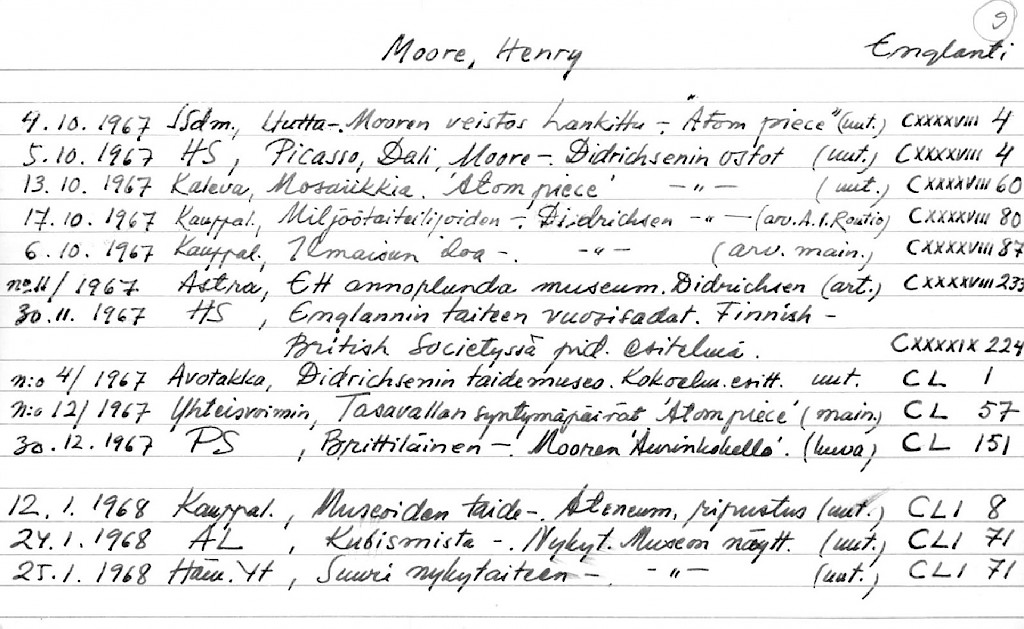 9
Moore, Henry Englanti
4.10. 1967 SSdm., Uutta-. Mooren veistos hankittu -. "Atom piece" (uut.) CXXXXVIII 4
5.10. 1967 HS, Picasso, Dali, Moore -. Didrichsenin ostot (uut.) CXXXXVIII 4
13.10. 1967 Kaleva, Mosaiikkia. 'Atom piece' -"- (uut.) CXXXXVIII 60
17.10. 1967 Kauppal., Miljöötaiteilijoiden -. Didrichsen -"- (arv. A.I. Routio) CXXXXVIII 80
6.10. 1967 Kauppal., Ilmaisun iloa -. -"- (arv. main.) CXXXXVIII 87
no. 11/ 1967 Astra, Ett annoplunda museum. Didrichsen (art.) CXXXXVIII 233
30.11. 1967 HS, Englannin taiteen vuosisadat. Finnish -
British Societyssä pid. esitelmä. CXXXXIX 224
n:o 4/ 1967 Avotakka, Didrichsenin taidemuseo. Kokoelm. esitt. uut. CL 1
n:o 12/ 1967 Yhteisvoimin, Tasavallan syntymäpäivät 'Atom piece' (main.) CL 57
30.12. 1967 PS, Brittiläinen -. Mooren 'Aurinkokello'. (kuva) CL 151
12.1. 1968 Kauppal., Museoiden taide -. Ateneum, ripustus (uut.) CLI 8
24.1. 1968 AL, Kubismista -. Nykyt. Museon näytt. (uut.) CLI 71
25.1. 1968 Häm. Yht, Suuri nykytaiteen -. -"- (uut.) CLI 71